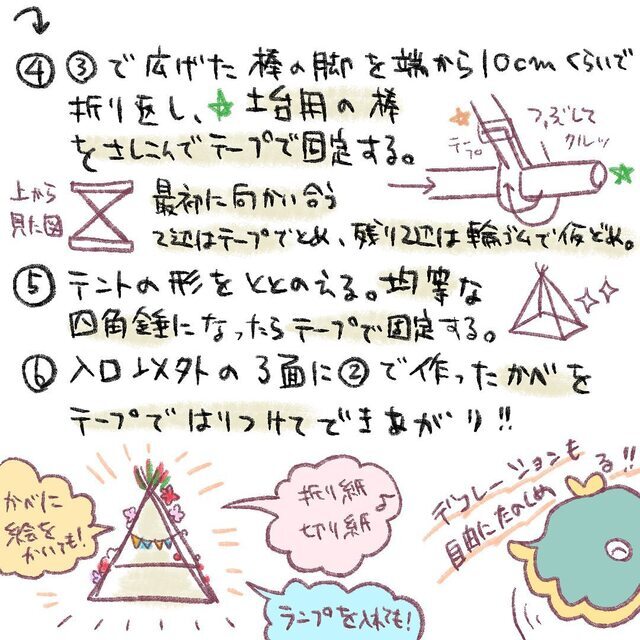 ④③で広げた棒の脚を端から10cmくらいで
折り返し、☆土台用の棒
をさしこんでテープで固定する。
つぶして
クルッ
テープ
上から
見た図
最初に向かい合う
2辺はテープでとめ、残り2辺は輪ゴムで仮どめ。
⑤テントの形をととのえる。均等な
四角錘になったらテープで固定する。
⑥入口以外の3面に②で作ったかべを
テープではりつけてできあがり!!
かべに
絵を
かいても!
折り紙♪
切り紙
ランプを入れても!
デコレーションも
自由にたのしめる!!